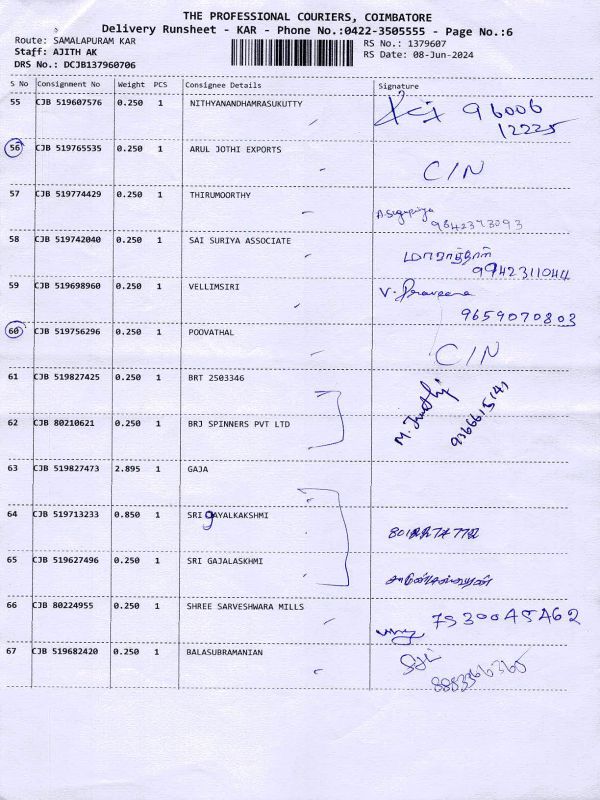 THE PROFESSIONAL COURIERS, COIMBATORE
Delivery Runsheet - KAR - Phone No.:0422-3505555 - Page No.:6
Route: SAMALAPURAM KAR
RS No.: 1379607
Staff: AJITH AK
RS Date: 08-Jun-2024
DRS No.: DCJB137960706
S No Consignment No Weight PCS Consignee Details Signature
55 CJB 519607576 0.250 1 NITHYANANDHAMRASUKUTTY
96006
12225
56 CJB 519765535 0.250 1 ARUL JOTHI EXPORTS
C/N
57 CJB 519774429 0.250 1 THIRUMOORTHY
9842373093
58 CJB 519742040 0.250 1 SAI SURIYA ASSOCIATE
9942311044
59 CJB 519698960 0.250 1 VELLIMSIRI
V. Praveena
9659070803
60 CJB 519756296 0.250 1 POOVATHAL
C/N
61 CJB 519827425 0.250 1 BRT 2503346
62 CJB 80210621 0.250 1 BRJ SPINNERS PVT LTD
63 CJB 519827473 2.895 1 GAJA
64 CJB 519713233 0.850 1 SRI gAYALKAKSHMI
65 CJB 519627496 0.250 1 SRI GAJALASKHMI
66 CJB 80224955 0.250 1 SHREE SARVESHWARA MILLS
67 CJB 519682420 0.250 1 BALASUBRAMANIAN